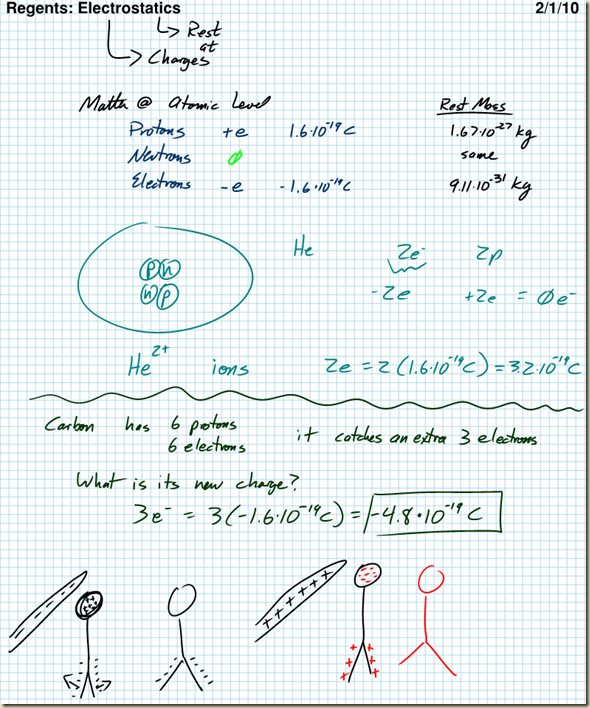 Regents: Electrostatics 2/1/10
Rest
at
Charges
Matter @ Atomic Level Rest Mass
Protons +e 1.6·10⁻¹⁹C 1.67·10⁻²⁷ kg
Neutrons ∅ same
Electrons -e -1.6·10⁻¹⁹C 9.11·10⁻³¹ kg
He 2e⁻ 2p
p n
n p
-2e +2e = ∅e⁻
He²⁺ ions 2e = 2(1.6·10⁻¹⁹C) = 3.2·10⁻¹⁹C
Carbon has 6 protons
6 electrons it catches an extra 3 electrons
What is its new charge?
3e⁻ = 3(-1.6·10⁻¹⁹C) = -4.8·10⁻¹⁹ C